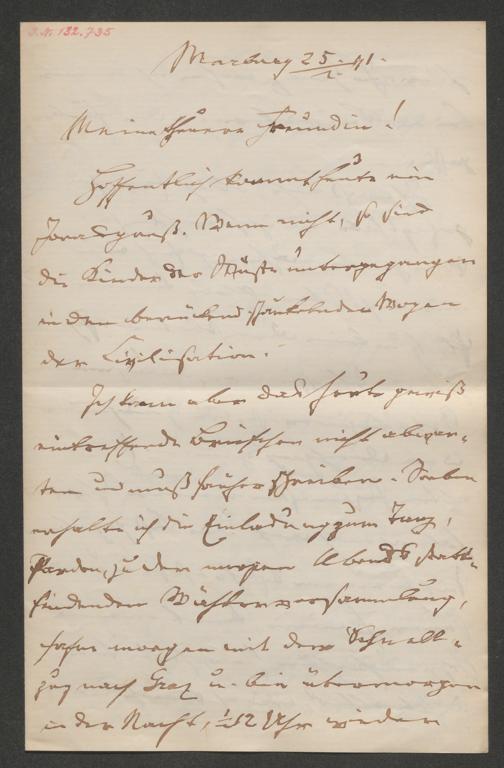 J.N. 132.735
Marburg 25. 91.
Meine theure Freundin!
Hoffentlich kommt heute ein
gruß. Wenn nicht, so sind
die Kinder der Wüste untergegangen
in den berückend schaukelnden Wogen
der Civilisation.
Ich kann aber das heute gewiß
eintreffende Briefchen nicht abwar-
ten und muß früher schreiben. Soeben
erhalte ich die Einladung zum Tanz,
Pardon, zu der morgen Abends statt-
findenden Wählerversammlung,
fahre morgen mit dem Schnell-
zug nach Graz u. bin übermorgen
in der Nacht, 1/2 12 Uhr wieder